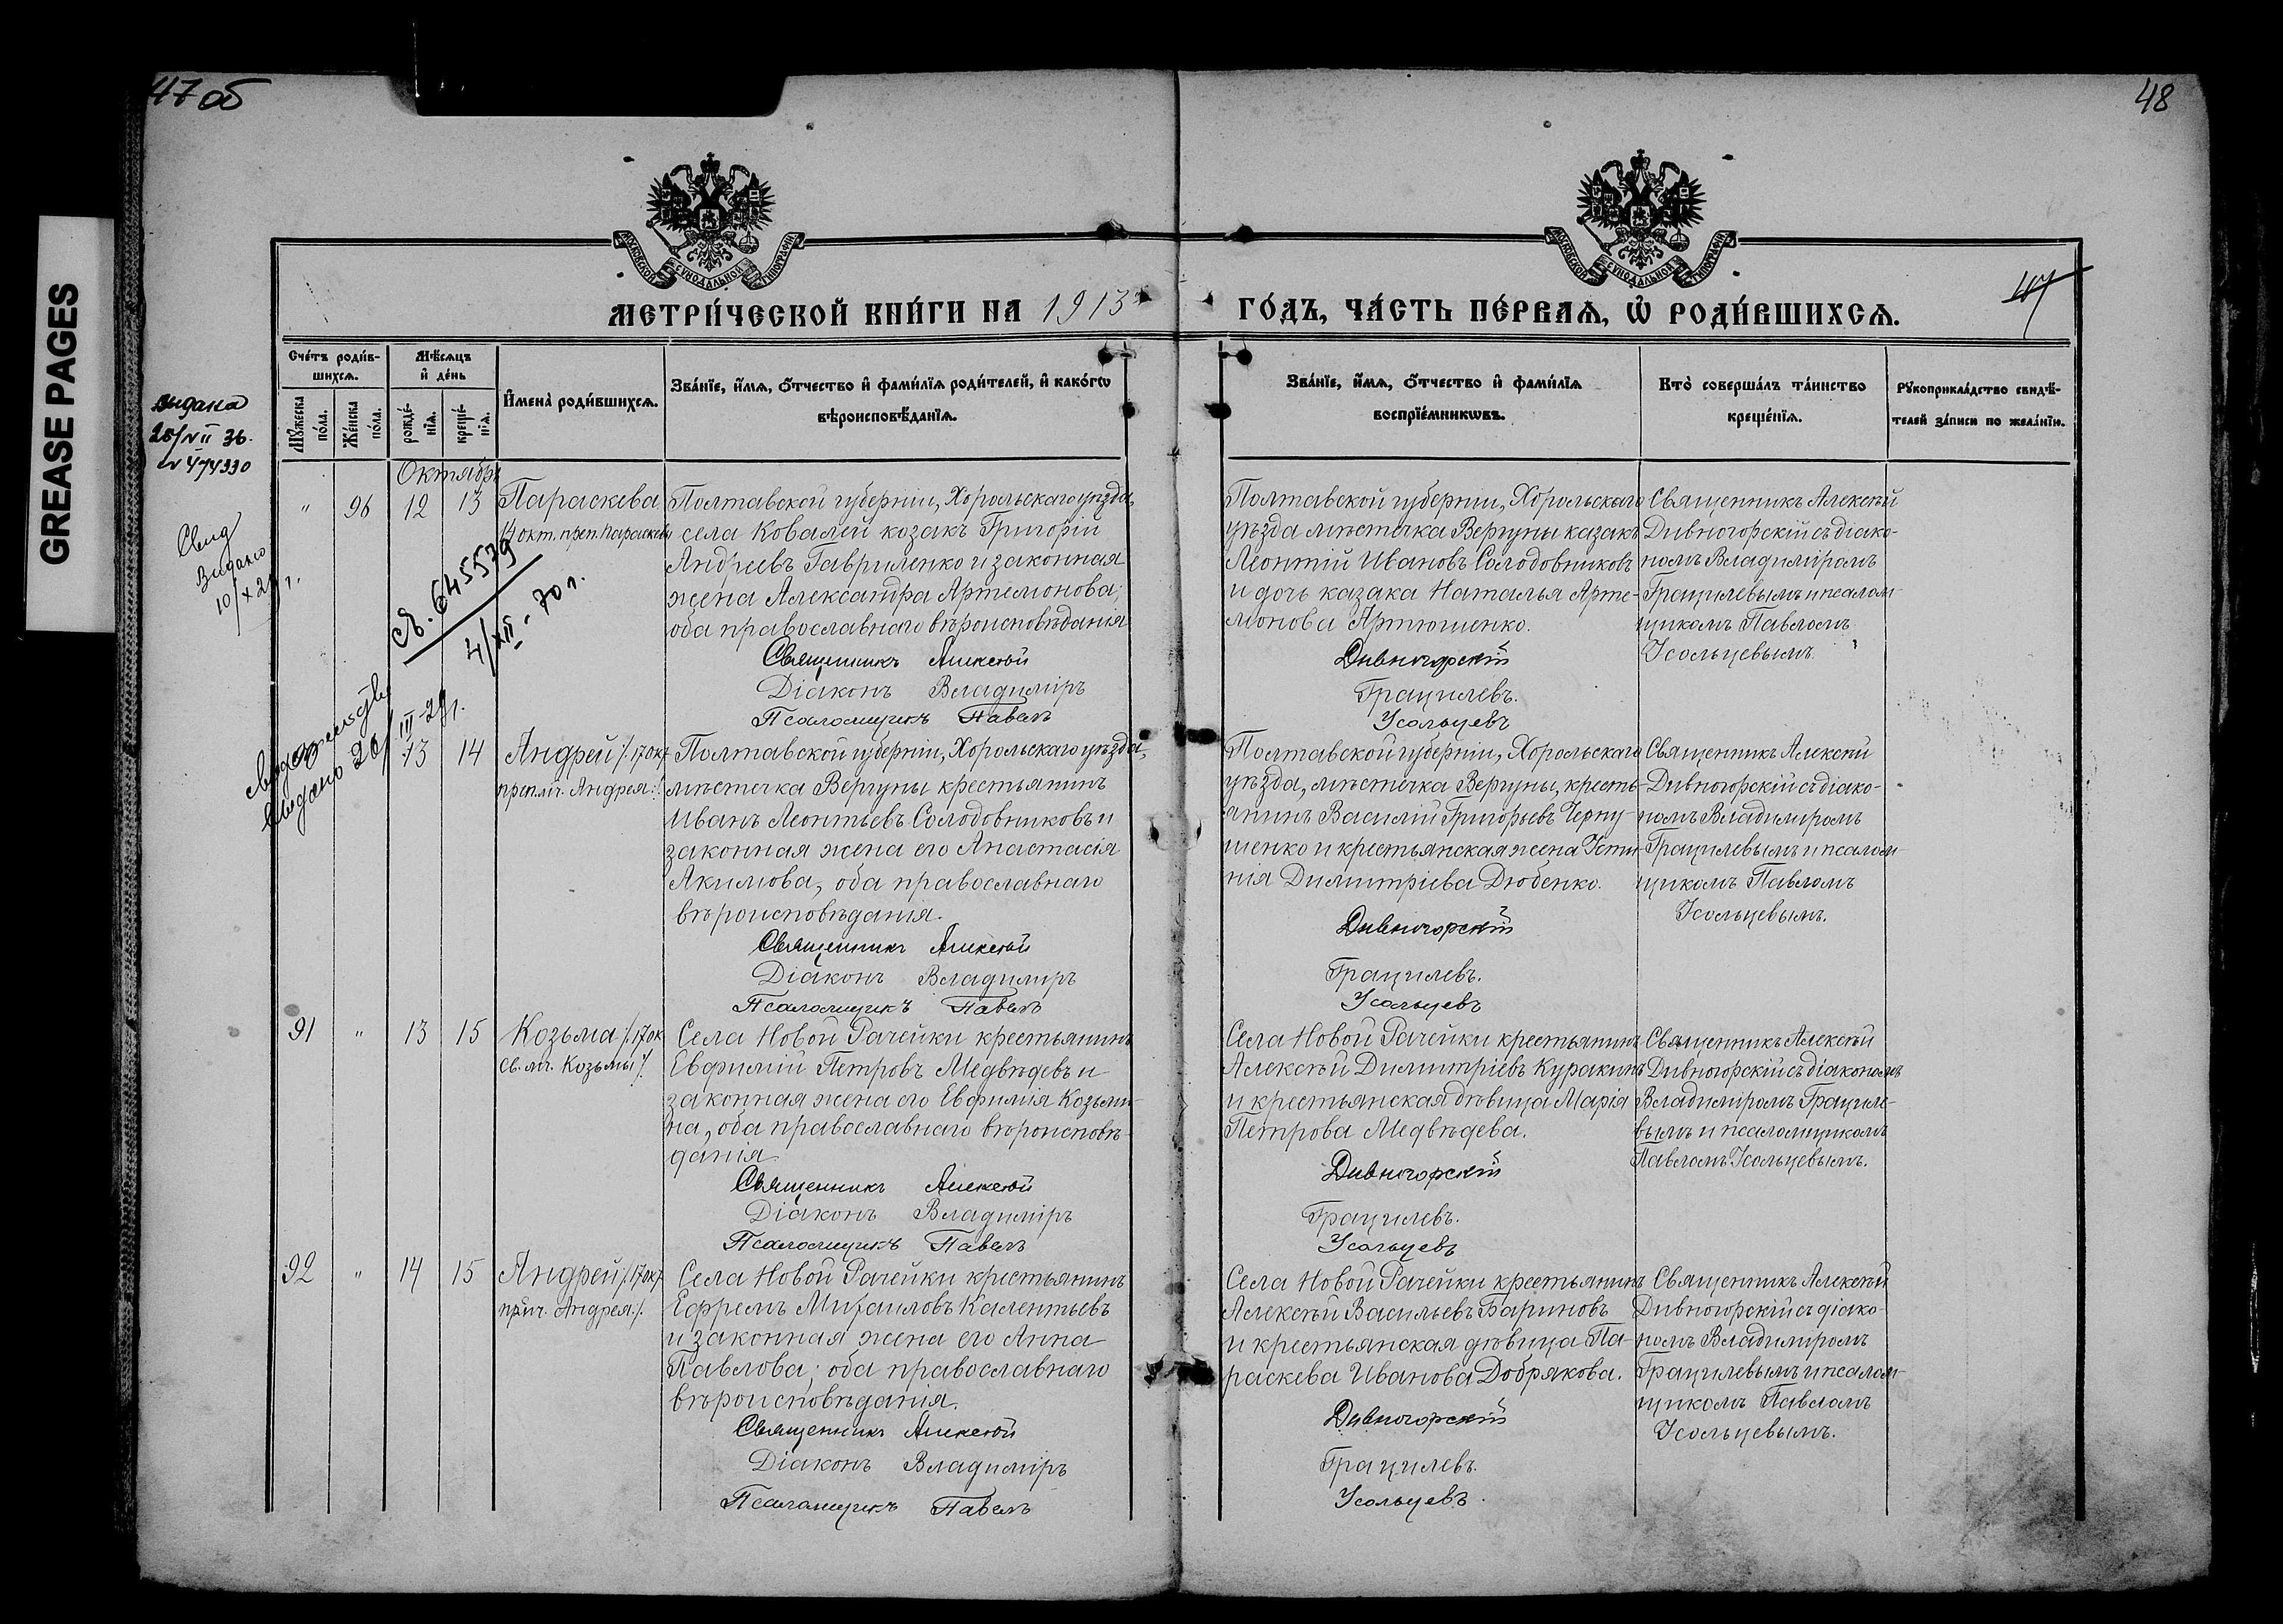 47 об
48
GREASE PAGES
МОСКОВСКОЙ СѴНОДАЛЬНОЙ ТИПОГРАФІИ
МОСКОВСКОЙ СѴНОДАЛЬНОЙ ТИПОГРАФІИ
МЕТРИ́ЧЕСКОЙ КНИ́ГИ НА 1913
ГО́ДЪ, ЧА́СТЬ ПЕ́РВАѦ, Ѡ҆ РОДИ́ВШИХСѦ.
47
Сче́тъ роди́в-
шихсѧ.
Мѣ́сѧцъ
и҆ де́нь
Мꙋ́жеска по́ла.
Же́нска по́ла.
рожде́-
нїѧ.
креще́-
нїѧ.
И҆мена̀ роди́вшихсѧ.
Зва́нїе, и҆́мѧ, ѻ҆́тчество и҆ фами́лїѧ роди́телей, и҆ како́гѡ
вѣроисповѣ́данїѧ.
Зва́нїе, и҆́мѧ, ѻ҆́тчество и҆ фами́лїѧ
воспрїе́мникѡвъ.
Кто̀ соверша́лъ та́инство
креще́нїѧ.
Рꙋкоприкла́дство свидѣ́-
телей за́писи по жела́нїю.
выдана
28/VII 36.
№ 474330
Свид
Выдано
10/X 29 г.
Октябрь
" 96 12 13 Параскева
14 окт. преп. Параскевы
Полтавской губерніи, Хорольскаго уѣзда,
села Ковалей козакъ Григорій
Андреевъ Гавриленко и законная
жена Александра Артемонова;
оба православнаго вѣроисповѣданія
Священникъ Алексѣй
Діаконъ Владиміръ
Псаломщикъ Павелъ
Полтавской губерніи, Хорольскаго
уѣзда мѣстечка Вергуны казакъ
Леонтій Ивановъ Солодовниковъ
и дочь казака Наталья Арте-
монова Артюшенко.
Дивногорскій
Грацилевъ.
Усольцевъ
Священникъ Алексѣй
Дивногорскій съ діако-
номъ Владиміромъ
Грацилевымъ и псалом-
щикомъ Павломъ
Усольцевымъ.
Св. 645539
4/XII - 70 г.
Выдано 20/III-29 г.
90 13 14 Андрей /. 17 окт
преп. м. Андрея ./.
Полтавской губерніи, Хорольскаго уѣзда,
мѣстечка Вергуны крестьянинъ
Иванъ Леонтьевъ Солодовниковъ и
законная жена его Анастасія
Акимова, оба православнаго
вѣроисповѣданія.
Священникъ Алексѣй
Діаконъ Владиміръ
Псаломщикъ Павелъ
Полтавской губерніи, Хорольскаго
уѣзда, мѣстечка Вергуны, кресть-
янинъ Василій Григорьевъ Черну-
шенко и крестьянская жена Усти-
нія Димитріева Дюбенко.
Дивногорскій
Грацилевъ.
Усольцевъ
Священникъ Алексѣй
Дивногорскій съ діако-
номъ Владиміромъ
Грацилевымъ и псалом-
щикомъ Павломъ
Усольцевымъ.
91 " 13 15 Козьма /. 17 ок
св. мч. Козьмы ./.
Села Новой Рачейки крестьянинъ
Евфимій Петровъ Медвѣдевъ и
законная жена его Евфимія Козьми-
на, оба православнаго вѣроисповѣ-
данія
Священникъ Алексѣй
Діаконъ Владиміръ
Псаломщикъ Павелъ
Села Новой Рачейки крестьянинъ
Алексѣй Димитріевъ Куракинъ
и крестьянская дѣвица Марія
Петрова Медвѣдева.
Дивногорскій
Грацилевъ.
Усольцевъ
Священникъ Алексѣй
Дивногорскій съ діакономъ
Владиміромъ Грациле-
вымъ и псаломщикомъ
Павломъ Усольцевымъ.
92 " 14 15 Андрей /. 17 окт
прмч. Андрея ./.
Села Новой Рачейки крестьянинъ
Ефремъ Михаиловъ Калентьевъ
и законная жена его Анна
Павлова; оба православнаго
вѣроисповѣданія.
Священникъ Алексѣй
Діаконъ Владиміръ
Псаломщикъ Павелъ
Села Новой Рачейки крестьянинъ
Алексѣй Васильевъ Бариновъ
и крестьянская дѣвица Па-
раскева Иванова Добрякова.
Дивногорскій
Грацилевъ.
Усольцевъ.
Священникъ Алексѣй
Дивногорскій съ діако-
номъ Владиміромъ
Грацилевымъ и псалом-
щикомъ Павломъ
Усольцевымъ.